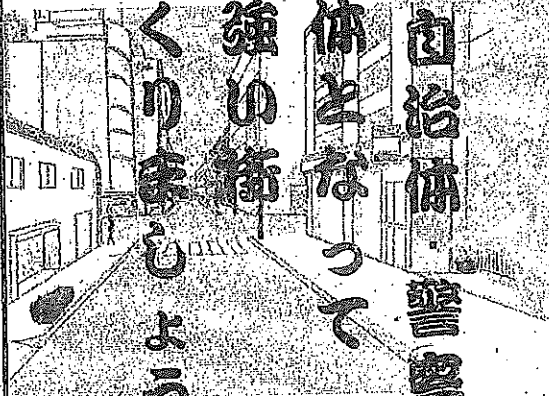 自治体・警察
体となって
強い街
くりましょう